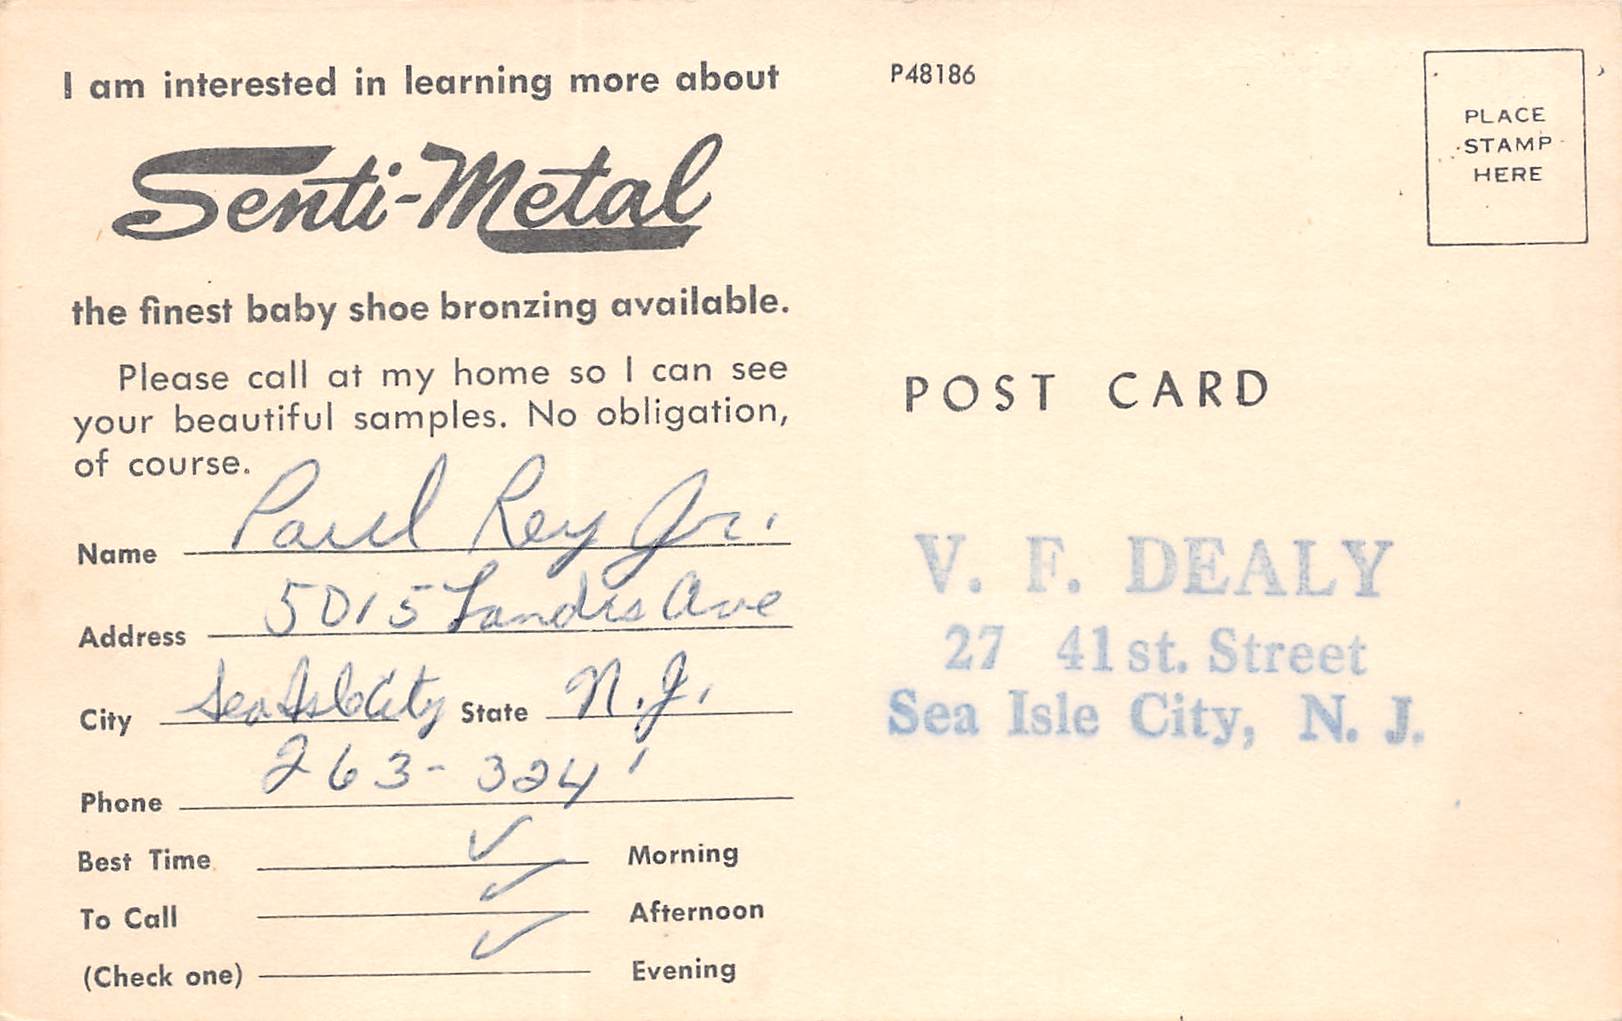 I am interested in learning more about
Senti-Metal
the finest baby shoe bronzing available.
Please call at my home so I can see
your beautiful samples. No obligation,
of course.
Name Paul Rey Jr.
Address 5015 Landis Ave
City Sea Isle City State N.J.
Phone 263-3241
Best Time ✓ Morning
To Call ✓ Afternoon
(Check one) ✓ Evening
P48186
PLACE
STAMP
HERE
POST CARD
V. F. DEALY
27 41st. Street
Sea Isle City, N. J.